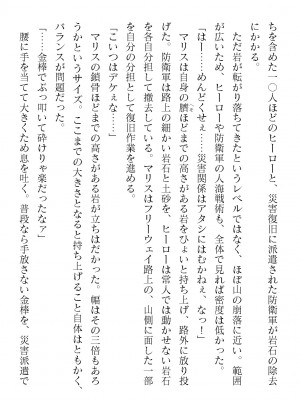 ちを含めた一〇人ほどのヒーローと、災害復旧に派遣された防衛軍が岩石の除去
にかかる。
　ただ岩が転がり落ちてきたというレベルではなく、ほぼ山の崩落に近い。範囲
が広いため、ヒーローや防衛軍の人海戦術も、全体で見れば密度は低かった。
「はー……めんどくせぇ……災害関係はアタシにはむかねぇ、なっ！」
　マリスは自身の臍ほどまでの高さがある岩をひょいと持ち上げ、路外に放り投
げた。防衛軍は路上の細かい岩石と土砂を、ヒーローは常人では動かせない岩石
を各自分担して撤去している。マリスはフリーウェイ路上の、山側に面した一部
を自分の分担として復旧作業を進める。
「こいつはデケぇな……」
　マリスの鎖骨ほどまでの高さがある岩が立ちはだかった。幅はその三倍もあろ
うかというサイズ。ここまでの大きさとなると持ち上げること自体はともかく、
バランスが問題だった。
「……金棒でぶっ叩いて砕けりゃ楽だったなァ」
　腰に手を当てて大きくため息を吐く。普段なら手放さない金棒を、災害派遣で